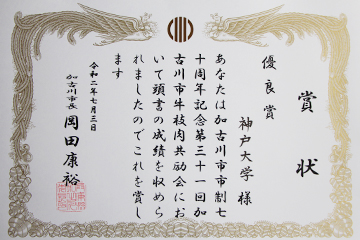 賞状
優良賞
神戸大学様
あなたは加古川市市制七
十周年記念第三十一回加
古川市牛枝肉共励会にお
いて頭書の成績を収めら
れましたのでこれを賞し
ます
令和二年七月三日
加古川市長 岡田康裕